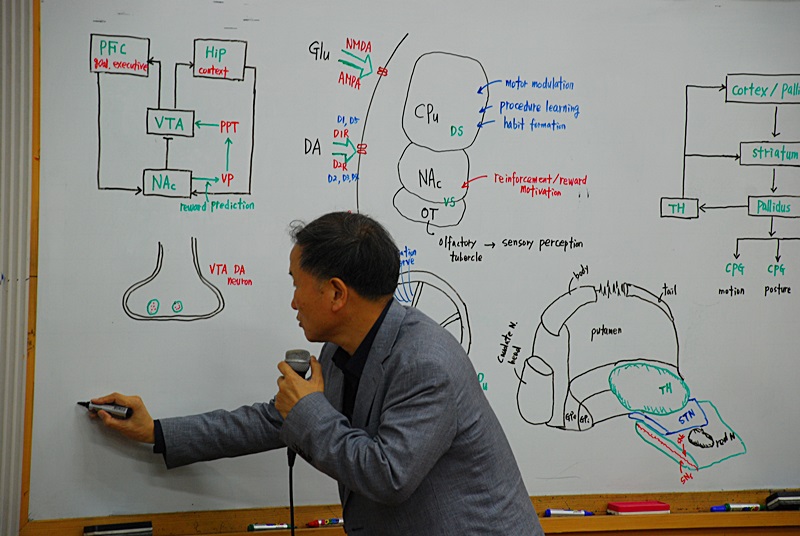 PFC
goal, executive
Hip
context
VTA
PPT
NAc
VP
reward prediction
VTA DA
neuron
Glu
NMDA
AMPA
DA
D1R
D2R
CPu
DS
motor modulation
procedure learning
habit formation
NAc
VS
reinforcement/reward
motivation
OT
olfactory → sensory perception
tubercle
cortex/Palli
striatum
TH
pallidus
CPG
motion
CPG
posture
body
tail
putamen
Caudate N.
head
GPe
GPi
TH
STN
red N